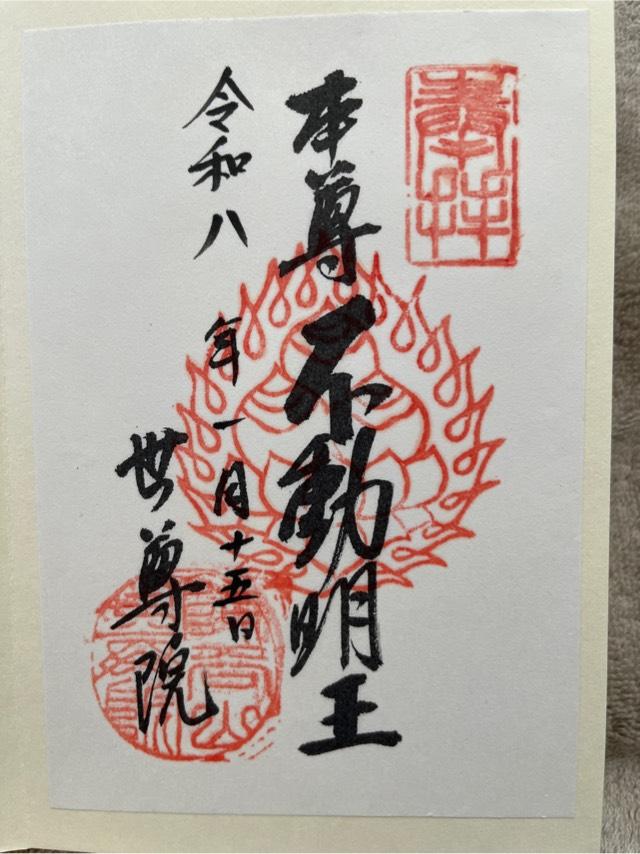 奉拝
本尊不動明王
令和八年一月十五日
世尊院